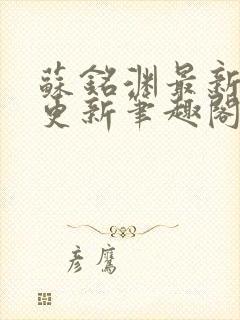 蘇銘淵最新
更新筆趣閣
彦鷹